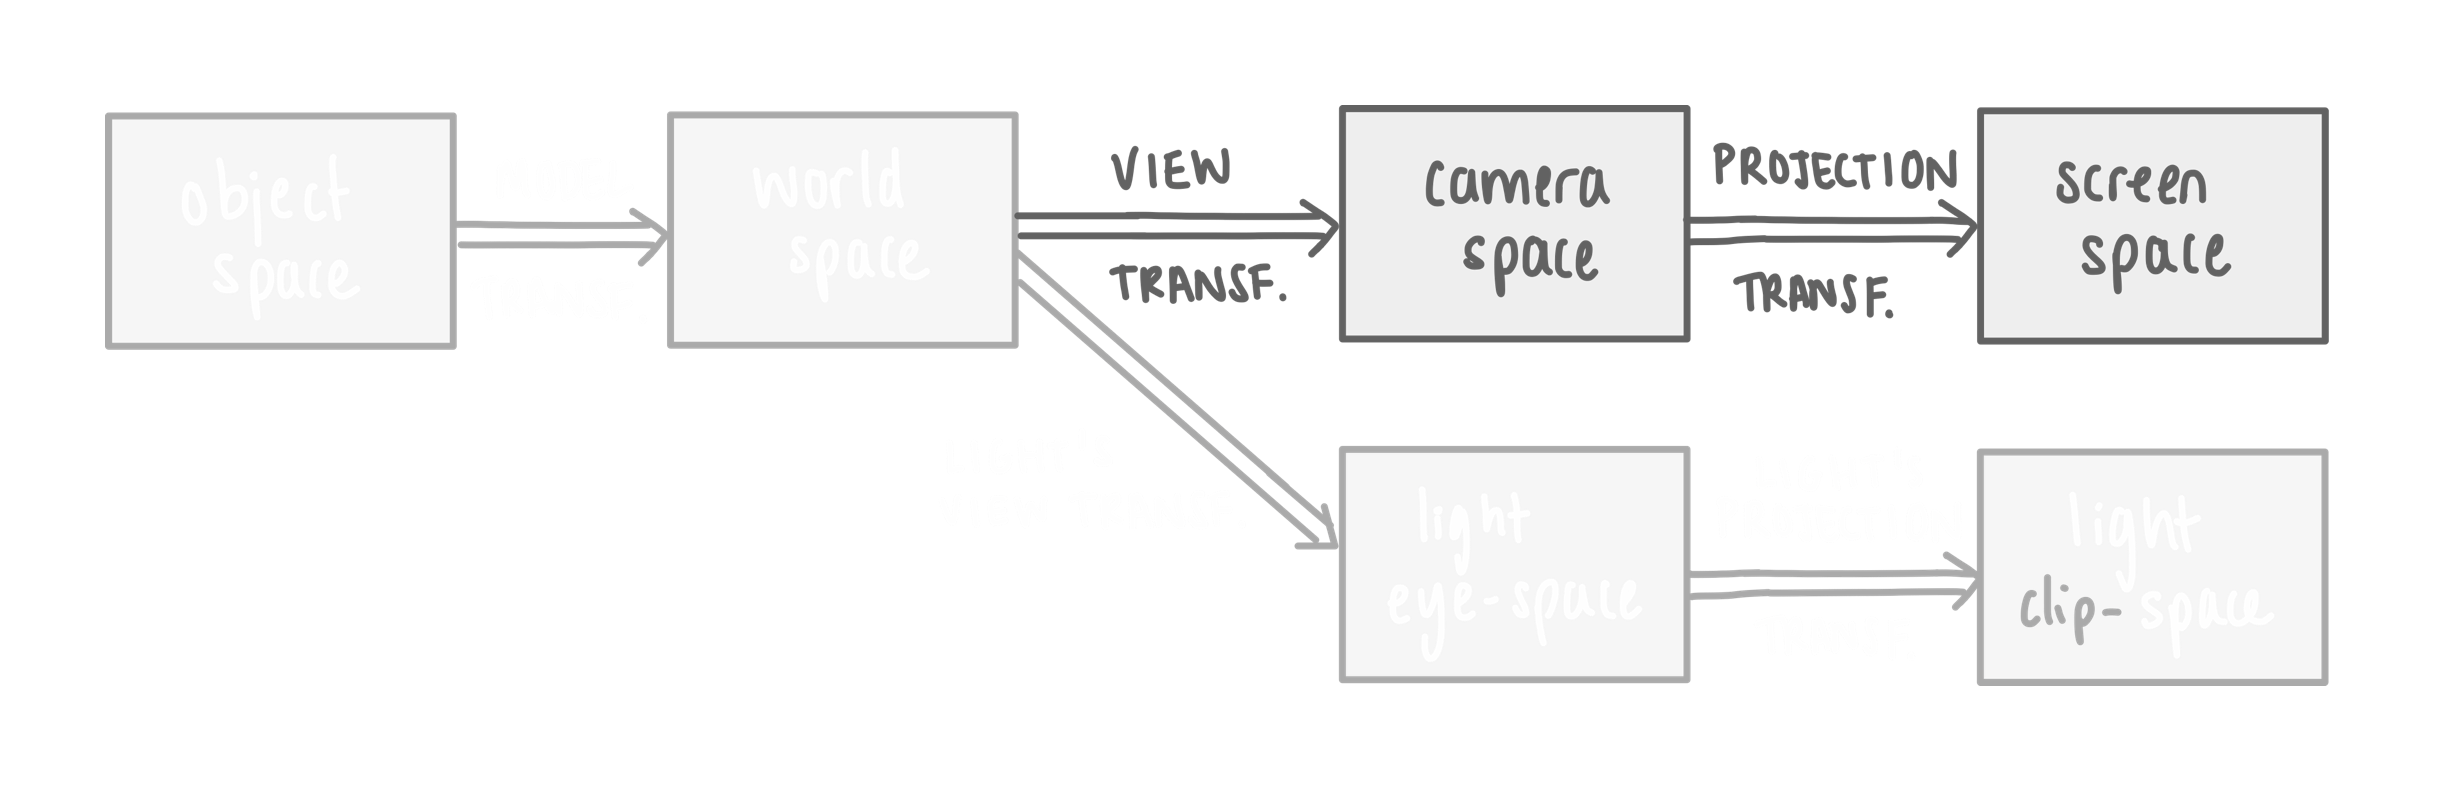 object
space
world
space
VIEW
TRANSF.
camera
space
PROJECTION
TRANSF.
screen
space
light
eye-space
light
clip-space